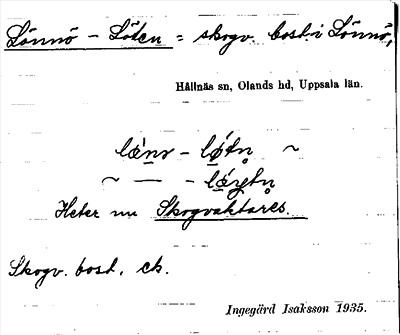 Lönnö - Löten = skogv. bost. i Lönnö,
Hållnäs sn, Olands hd, Uppsala län.
~
~ —
Heter nu Skogvaktares.
Skogv. bost. ck.
Ingegärd Isaksson 1935.